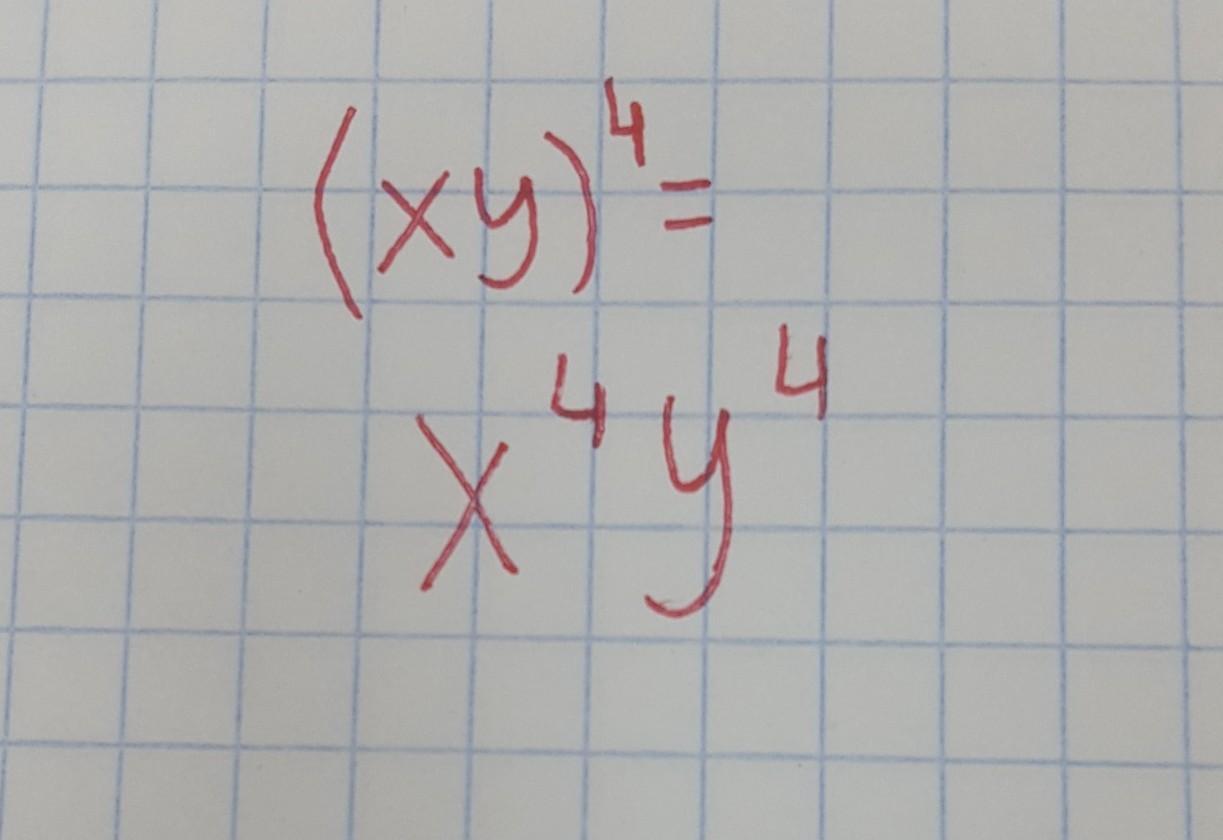 (xy)⁴=
x⁴y⁴